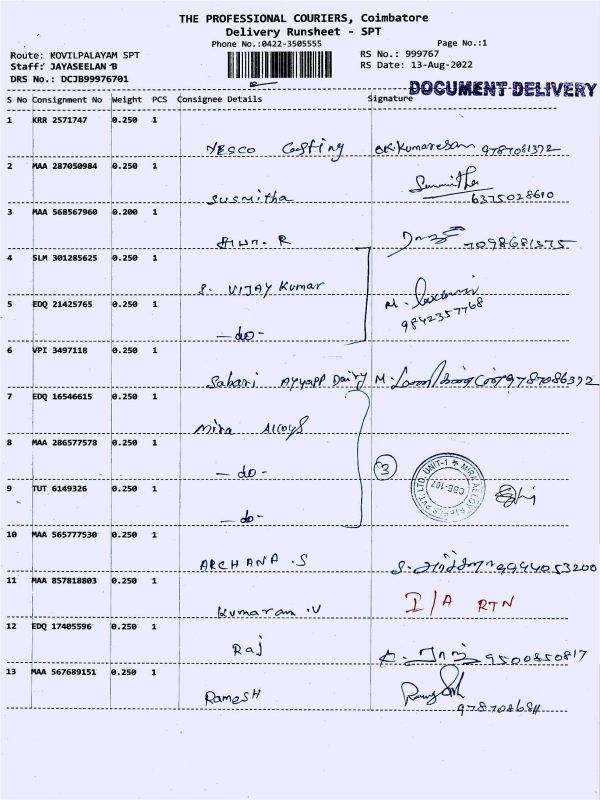 THE PROFESSIONAL COURIERS, Coimbatore
Delivery Runsheet - SPT
Phone No.:0422-3505555
Page No.:1
Route: KOVILPALAYAM SPT
RS No.: 999767
Staff: JAYASEELAN B
RS Date: 13-Aug-2022
DRS No.: DCJB99976701
DOCUMENT DELIVERY
S No Consignment No Weight PCS Consignee Details Signature
1 KRR 2571747 0.250 1
Mesco Casting OK.Kumaresan 9787081372
2 MAA 287050984 0.250 1
Susmitha 6375028610
3 MAA 568567960 0.200 1
R 7098681375
4 SLM 301285625 0.250 1
S. VIJAY Kumar M.
5 EDQ 21425765 0.250 1
9842357768
- do -
6 VPI 3497118 0.250 1
Sabari Ayyapp Dairy M. 9787086372
7 EDQ 16546615 0.250 1
Mira Alloys
8 MAA 286577578 0.250 1
- do - 3
MIRA ALLOY STEELS PVT. LTD. UNIT-1
CBE-107
9 TUT 6149326 0.250 1
- do -
10 MAA 565777530 0.250 1
ARCHANA .S S. 9944053200
11 MAA 857818803 0.250 1
Kumaran .V I/A RTN
12 EDQ 17405596 0.250 1
Raj 9500350817
13 MAA 567689151 0.250 1
Ramesh